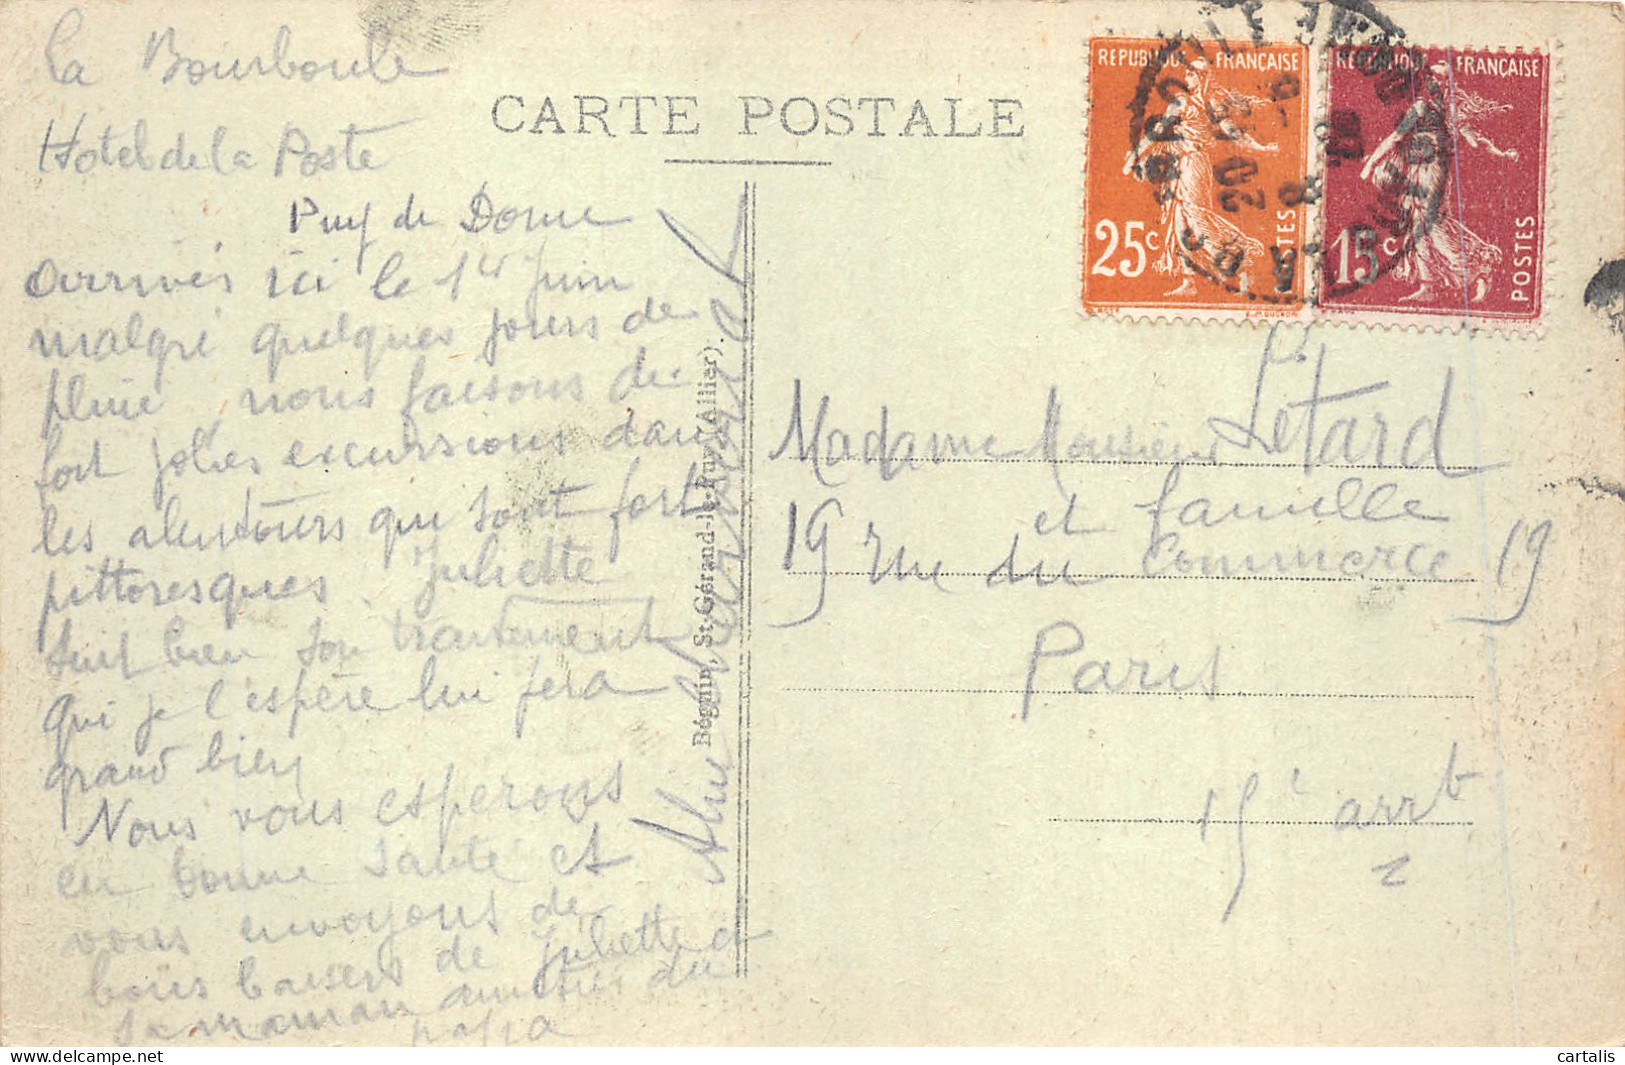 La Bourboule
Hotel de la Poste
Puy de Dome
Arrivés ici le 1er Juin
malgré quelques jours de
pluie, nous faisons de
fort jolies excursions dans
les alentours qui sont fort
pittoresques. Juliette
suit bien son traitement
qui je l'espère lui fera
grand bien
Nous vous esperons
en bonne santé et
vous envoyons de
bons baisers de Juliette et
sa maman amitiés du
papa
CARTE POSTALE
Béguin, St-Gérand-le-Puy (Allier).
REPUBLIQUE FRANÇAISE
25c
POSTES
REPUBLIQUE FRANÇAISE
15c
POSTES
Madame Monsieur Létard
et famille
19 rue du Commerce 19
Paris
15e arrt
cartalis